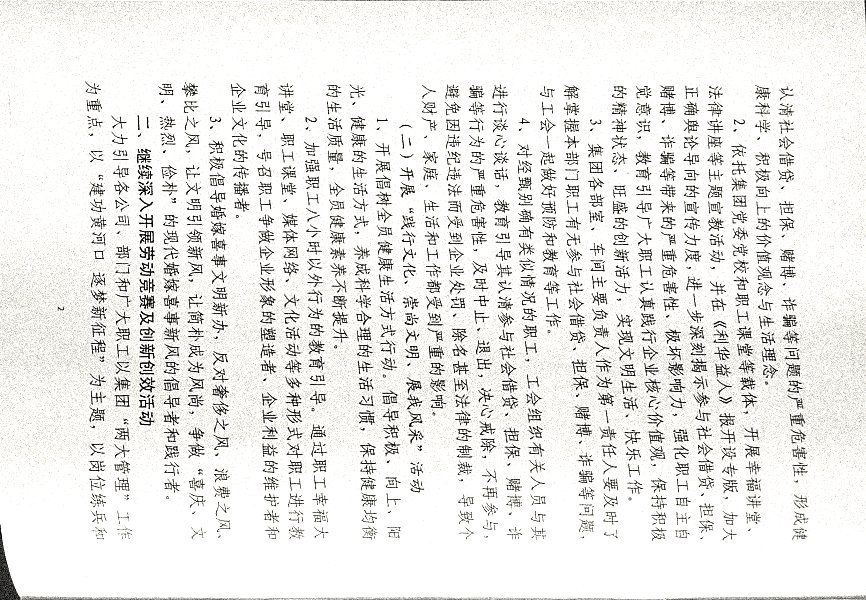 认清社会借贷、担保、赌博、诈骗等问题的严重危害性，形成健
康科学、积极向上的价值观念与生活理念。
2、依托集团党委党校和职工课堂等载体，开展幸福讲堂、
法律讲座等主题宣教活动，并在《利华益人》报开设专版，加大
正确舆论导向的宣传力度，进一步深刻揭示参与社会借贷、担保、
赌博、诈骗等带来的严重危害性、极坏影响力，强化职工自主自
觉意识，教育引导广大职工认真践行企业核心价值观，保持积极
的精神状态、旺盛的创新活力，实现文明生活、快乐工作。
3、集团各部室、车间主要负责人作为第一责任人要及时了
解掌握本部门职工有无参与社会借贷、担保、赌博、诈骗等问题，
与工会一起做好预防和教育等工作。
4、对经甄别确有类似情况的职工，工会组织有关人员与其
进行谈心谈话，教育引导其认清参与社会借贷、担保、赌博、诈
骗等行为的严重危害性，及时中止、退出，决心戒除，不再参与，
避免因违纪违法而受到企业处罚、除名甚至法律的制裁，导致个
人财产、家庭、生活和工作都受到严重的影响。
（二）开展“践行文化、崇尚文明、展我风采”活动
1、开展倡树全员健康生活方式行动。倡导积极、向上、阳
光、健康的生活方式，养成科学合理的生活习惯，保持健康均衡
的生活质量，全员健康素养不断提升。
2、加强职工八小时以外行为的教育引导。通过职工幸福大
讲堂、职工课堂、媒体网络、文化活动等多种形式对职工进行教
育引导、号召职工争做企业形象的塑造者、企业利益的维护者和
企业文化的传播者。
3、积极倡导婚嫁喜事文明新办，反对奢侈之风、浪费之风、
攀比之风，让文明引领新风，让简朴成为风尚，争做“喜庆、文
明、热烈、俭朴”的现代婚嫁喜事新风的倡导者和践行者。
二、继续深入开展劳动竞赛及创新创效活动
大力引导各公司、部门和广大职工以集团“两大管理”工作
为重点，以“建功黄河口 逐梦新征程”为主题，以岗位练兵和
2